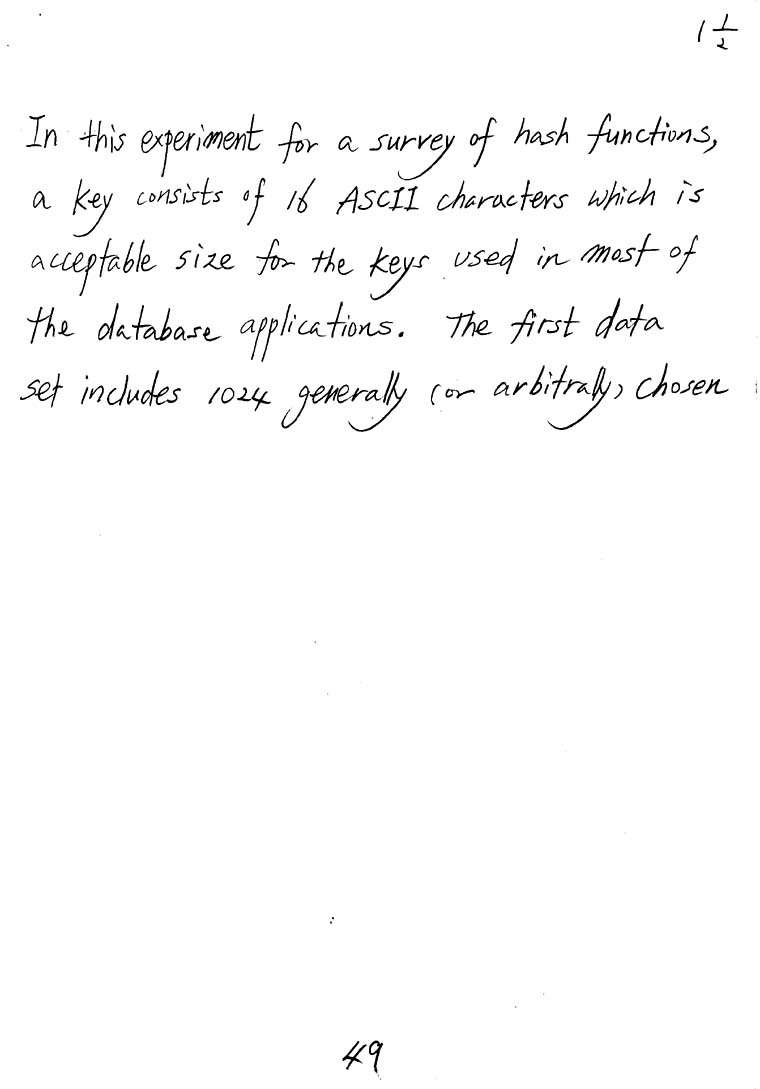 1 1/2
In this experiment for a survey of hash functions,
a key consists of 16 ASCII characters which is
acceptable size for the keys used in most of
the database applications. The first data
set includes 1024 generally (or arbitrally) chosen
49